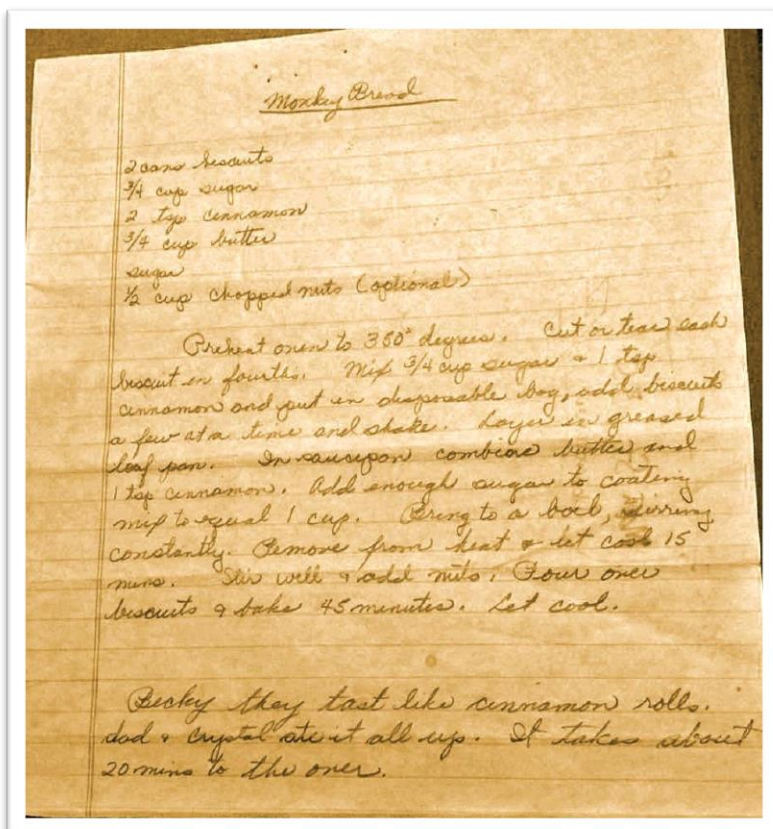 Monkey Bread
2 cans biscuits
3/4 cup sugar
2 tsp cinnamon
3/4 cup butter
sugar
1/2 cup chopped nuts (optional)
Preheat oven to 350° degrees. Cut or tear each
biscuit in fourths. Mix 3/4 cup sugar & 1 tsp
cinnamon and put in disposable bag, add biscuits
a few at a time and shake. Layer in greased
loaf pan. In saucepan combine butter and
1 tsp cinnamon. Add enough sugar to coating
mix to equal 1 cup. Bring to a boil, stirring
constantly. Remove from heat & let cool 15
mins. Stir well & add nuts. Pour over
biscuits & bake 45 minutes. Let cool.
Becky they tast like cinnamon rolls.
dad & Crystal ate it all up. It takes about
20 mins to the oven.